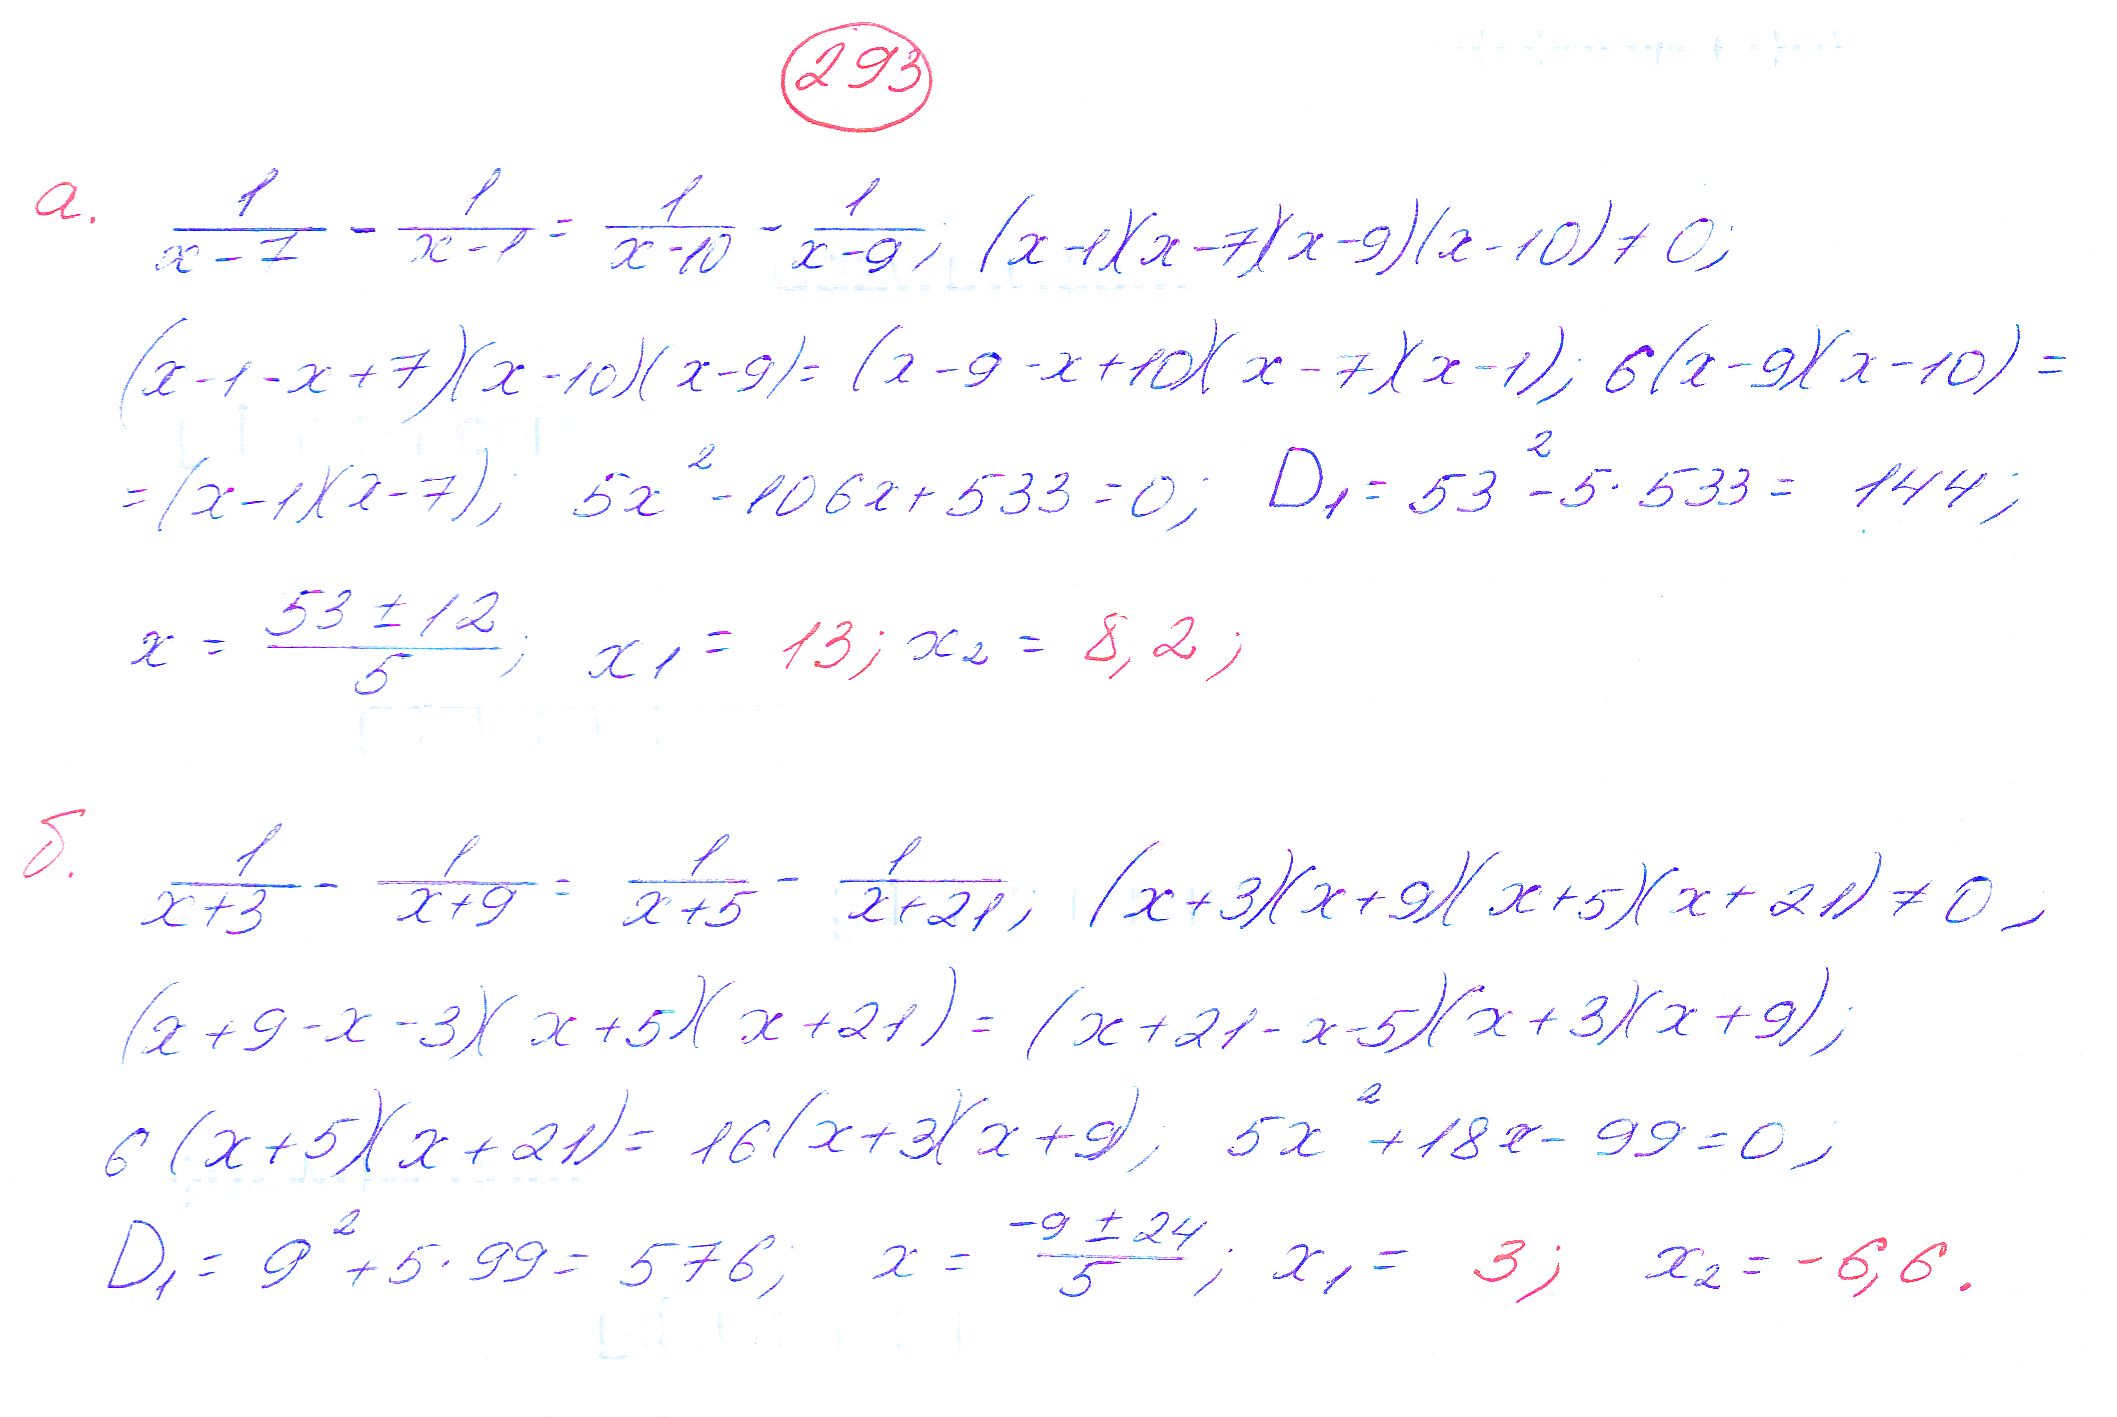 293
а. 1/(x-7) - 1/(x-1) = 1/(x-10) - 1/(x-9); (x-1)(x-7)(x-9)(x-10) ≠ 0;
(x-1-x+7)(x-10)(x-9) = (x-9-x+10)(x-7)(x-1); 6(x-9)(x-10) =
= (x-1)(x-7); 5x² - 106x + 533 = 0; D₁ = 53² - 5·533 = 144;
x = (53 ± 12)/5; x₁ = 13; x₂ = 8,2;
б. 1/(x+3) - 1/(x+9) = 1/(x+5) - 1/(x+21); (x+3)(x+9)(x+5)(x+21) ≠ 0,
(x+9-x-3)(x+5)(x+21) = (x+21-x-5)(x+3)(x+9);
6(x+5)(x+21) = 16(x+3)(x+9); 5x² + 18x - 99 = 0;
D₁ = 9² + 5·99 = 576; x = (-9 ± 24)/5; x₁ = 3; x₂ = -6,6.